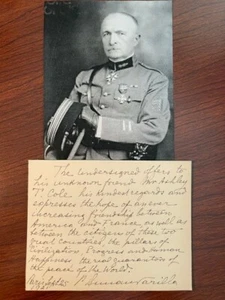 The undersigned offers to
his unknown friend
77 his kindest regards and
expresses the hope of an ever
increasing friendship between
America and France, as well as
between the citizens of these two
great countries the pillars of
Civilization Progress and human
happiness the real guarantors of
the peace of the World.